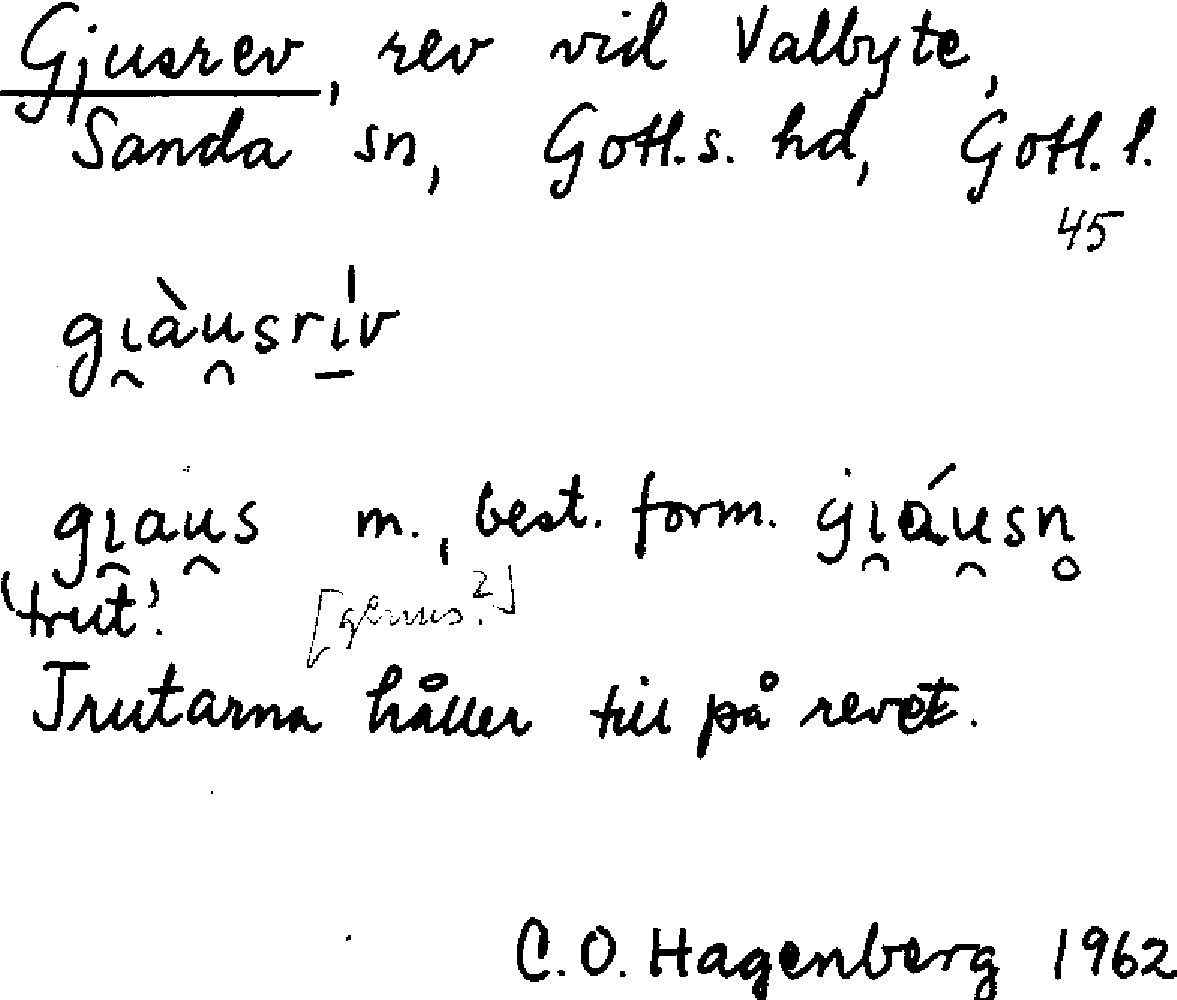 Gjusrev, rev vid Valbyte,
Sanda sn, Gotl. s. hd, Gotl. l.
45
gı̯àu̯srı̱́v
gı̯au̯s m., best. form. gı̯áu̯sn̥
'trut'. [genus?]
Trutarna håller till på revet.
C. O. Hagenberg 1962